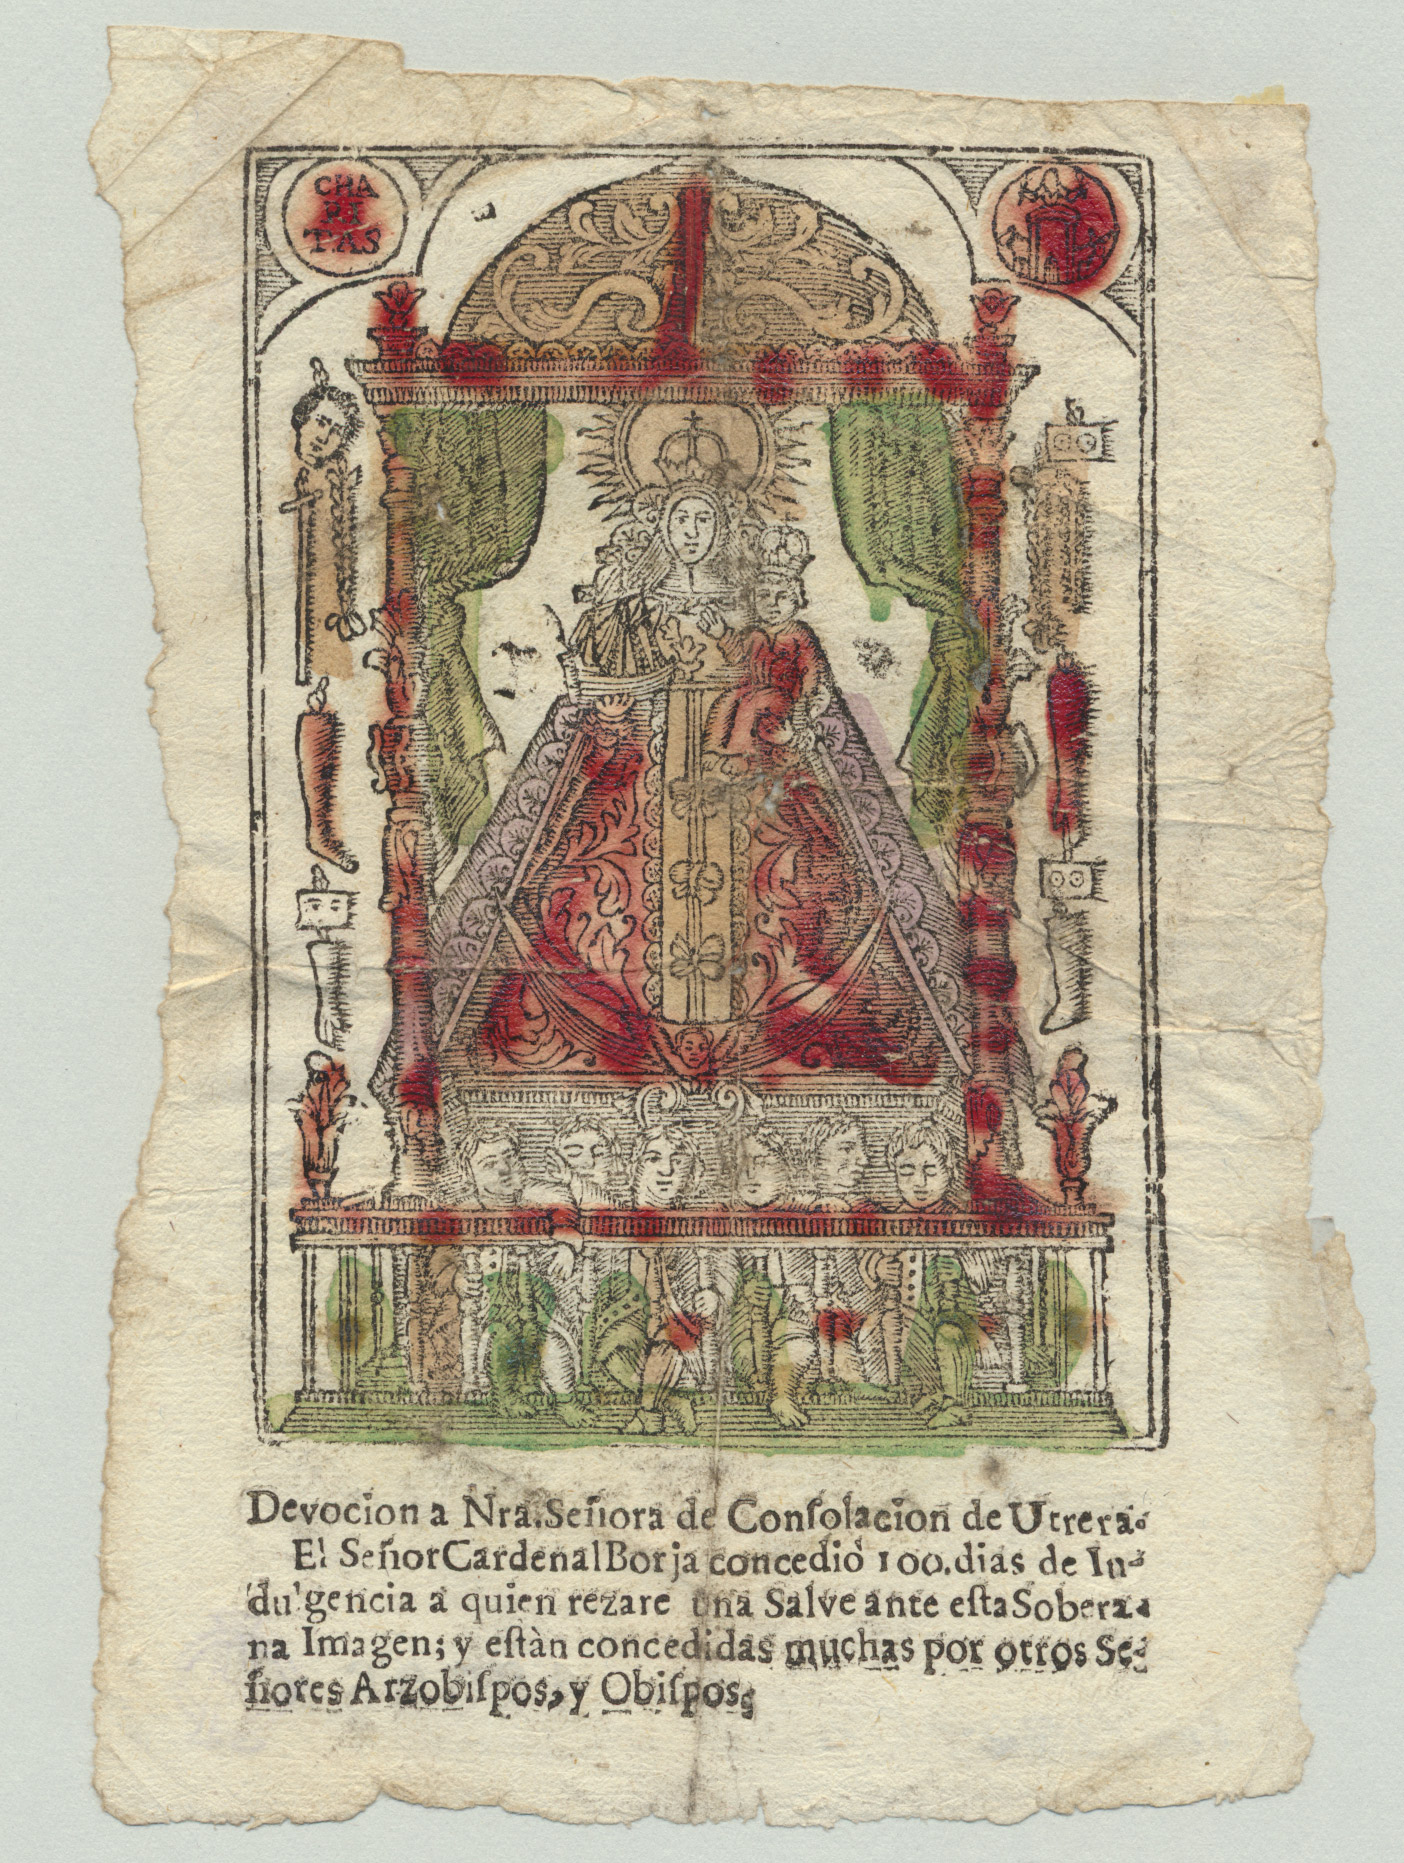 CHA
RI
TAS
Devocion a Nra. Señora de Conſolacion de Utrera.
El Señor Cardenal Borja concediò 100. dias de In-
dulgencia a quien rezare una Salve ante eſta Sobera-
na Imagen; y eſtàn concedidas muchas por otros Se-
ñores Arzobiſpos, y Obiſpos.